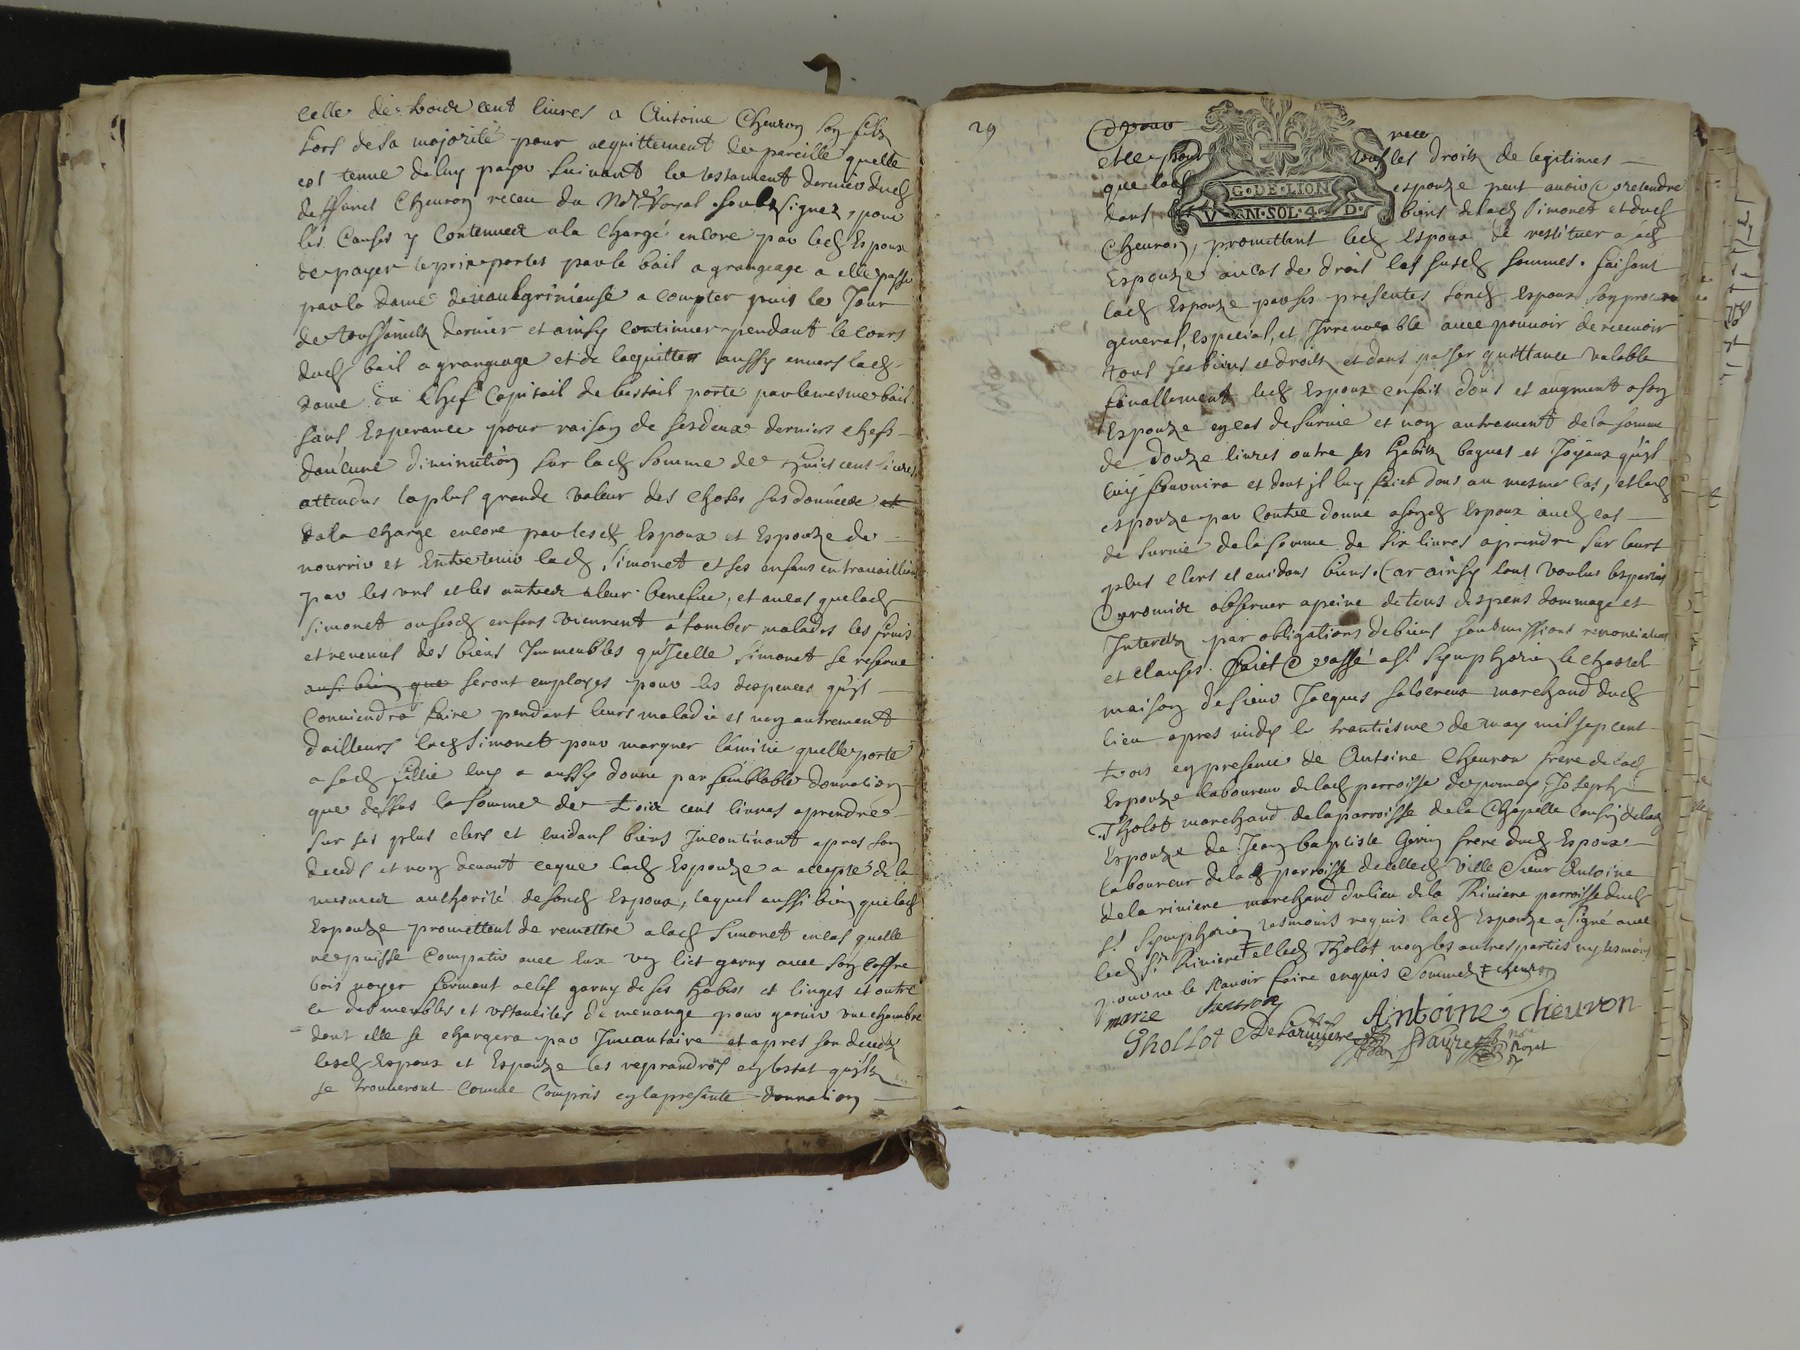 celle de trois cent livres a Antoine Cheuron son filz
Lors de sa majorité pour acquittement de pareille quelle
est tenue de luy payer suivant le testament dernier dud
deffunct Cheuron receu du No.re Royal soubzsigné, pour
les Causes y contenues a la charge encore par led Espoux
de payer le prix portes par le bail a grangeage a elle passé
par la dame a compter puis le Jour
de toussainctz dernier et ainsy continuer pendant le cours
dud bail a grangeage et de lacquitter aussy envers lad
dame du Chef Capitail de bestail porté par le mesme bail
sans Esperance pour raison de ses deux derniers chefs
daucune diminution sur lad somme de huict cent livres
attendus la plus grande valeur des choses susdonnées et
de la charge encore par lesd Espoux et Espouze de
nourrir et Entretenir lad Simonet et ses enfans en travaillant
par les uns et les autres a leur benefice, et au cas que lad
Simonet ou sesd enfans viennent a tomber malades les fruis
et revenus des biens Immeubles qu'Icelle Simonet se reserve
aussi bien que seront employes pour les despences qu'il
Conviendra faire pendant leurs maladie et non autrement
dailleurs lad Simonet pour marquer lamitié quelle porte
a sad fillie luy a aussy donné par semblable donnation
que dessus la somme de trois cent livres a prendre
sur ses plus clers et evidans biens Incontinant apres son
deceds et non devant ce que lad Espouze a accepté de la
mesme authorité de sond Espoux, lequel aussi bien que lad
Espouze promettent de remettre a lad Simonet en cas quelle
ne puisse compatir avec Eux un lict garny avec son coffre
bois noyer fermant a clef garny de ses habits et linges et outre
ce des meubles et ustancilles de menange pour garnir une chambre
dont elle se chargera par Invantaire et apres son deceds
lesd Espoux et Espouze les reprandront en lestat qu'ilz
se trouveront comme compris en la presente donnation
29
G · DE · LION
V · N · SOL · 4 · D ·
et ce pour tous les droitz de legitimes
que lad espouze peut avoir & pretendre
dans les biens de lad Simonet et dud
Cheuron, promettant led Espoux de restituer a lad
Espouze au cas de droit les susd sommes. faisant
lad Espouze par ses presentes sond Espoux son procureur
general, Especial, et Irrevocable avec pouvoir de recevoir
tous ses biens et droitz et dans passer quittance valable
finallement led Espoux en fait dons et augment a son
Espouze en cas de survie et non autrement de la somme
de douze livres outre ses habitz bagues et Joyaux qu'il
luy fournira et dont il luy faict dons au mesme cas, et lad
espouze par contre donne a sond Espoux aud cas
de survie de la somme de six livres a prendre sur leurs
plus clers et evidans biens. Car ainsy lont voulus les parties
& promise observer a peine de tous despens dommage et
Interetz par obligations de biens soubmissions renonciations
et clauses. Faict & passé a St Symphorien le chastel
maison de sieur Jacques marchand dud
lieu apres midy le trantiesme de may mil sept cent
trois en presence de Antoine Cheuron frere de lad
Espouze laboureur de lad parroisse de pomey Joseph
Tholot marchand de la parroisse de la Chapelle cousin de lad
Espouze de Jean baptiste frere dud Espoux
laboureur de lad parroisse de lad ville Sieur Antoine
de la riviere marchand du lieu de la Riviere parroisse dud
St Symphorien tesmoins requis lad Espouze a signé avec
led Sr Riviere et led Tholot non les autres parties ny tesmoins
pour ne le scavoir faire enquis & sommés cheuron
marie cheuron Antoine cheuron
Thollot Delariviere